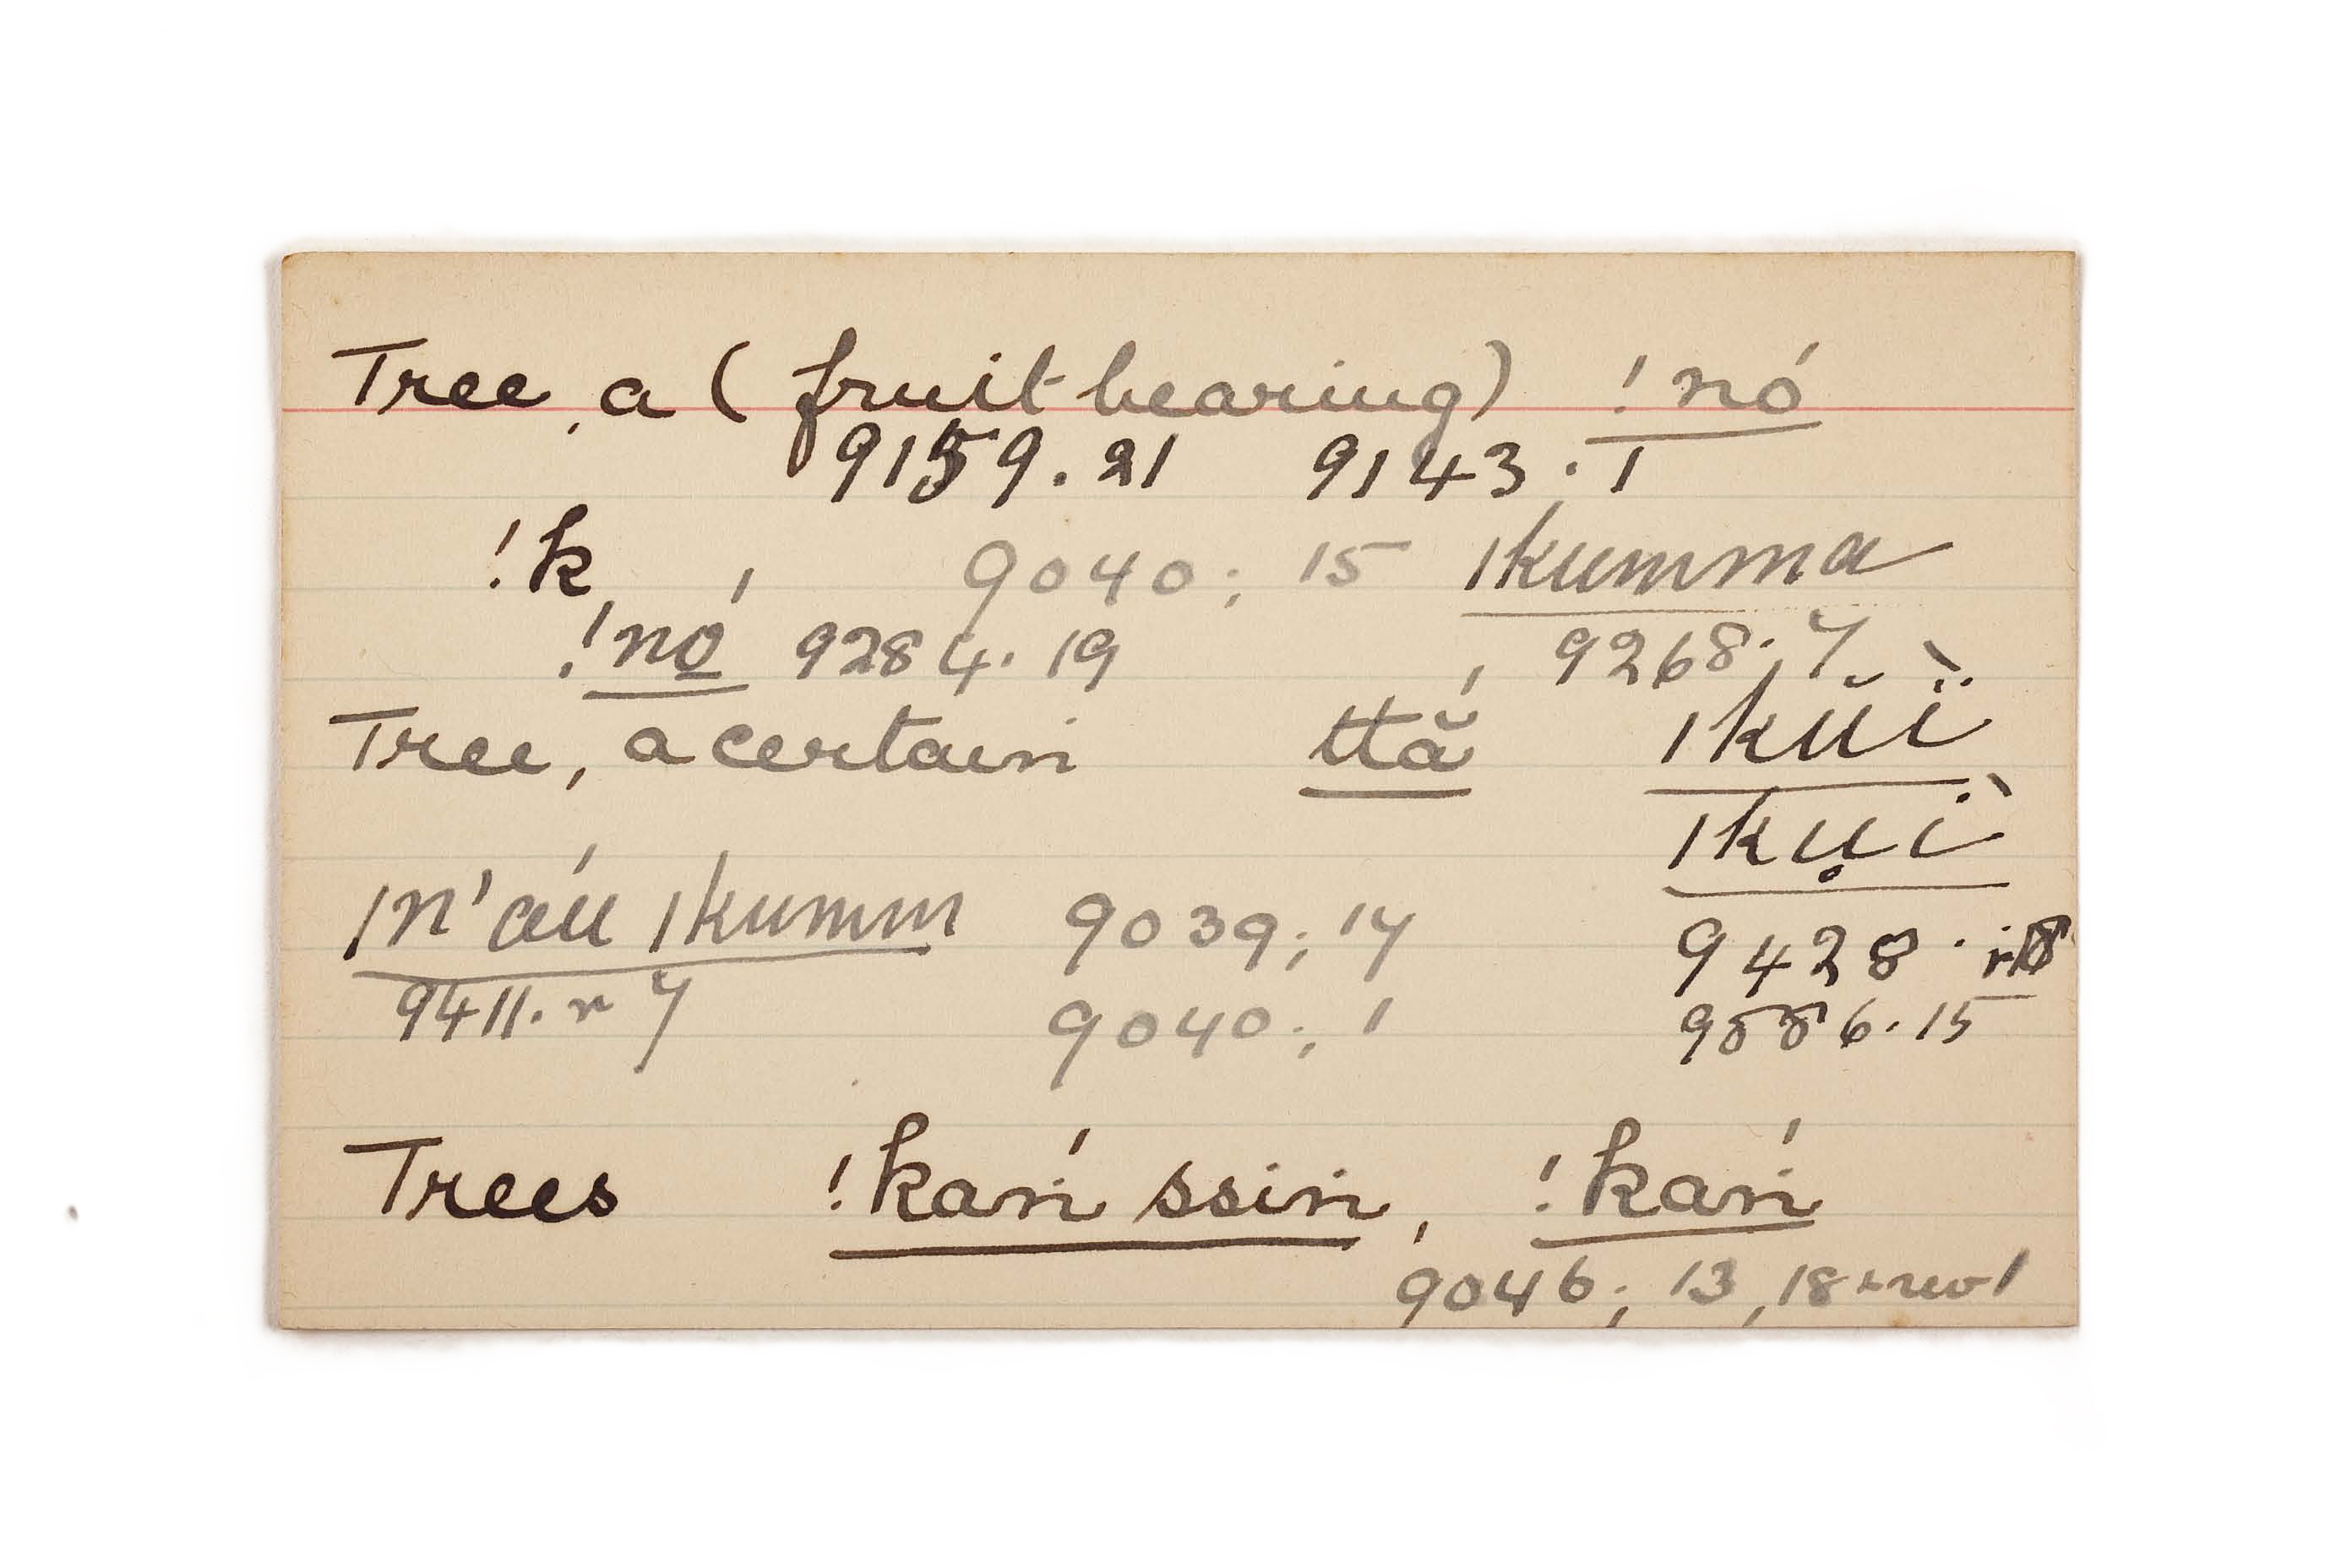 Tree, a (fruit bearing) !nó
9159.21 9143.1
!k 9040; 15 |kumma
!nó 9284.19 9268.7
Tree, a certain ttắ |kŭï̀
|kụï̀
|n'áu |kumm 9039; 17 9428.
9411. r 7 9040; 1 9886.15
Trees !kań ssin, !kań
9046; 13, 18 + rev 1